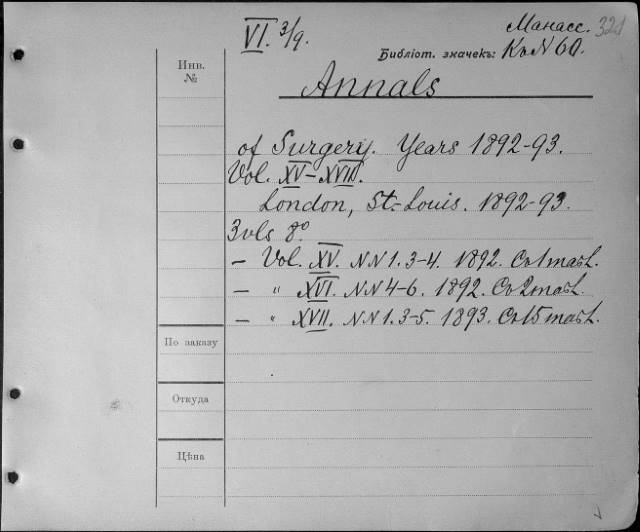 VI. 3/9.
Манасс. 321
Библіот. значекъ: Къ N 60.
Инв.
№
Annals
of Surgery. Years 1892-93.
Vol. XV-XVIII.
London, St.-Louis. 1892-93.
3 vls 8°
— Vol. XV. NN 1. 3-4. 1892.
— " XVI. NN 4-6. 1892.
— " XVII. NN 1. 3-5. 1893.
По заказу
Откуда
Цѣна